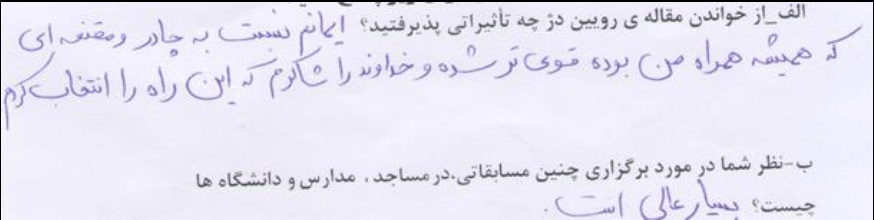 الف_از خواندن مقاله ی رویین دژ چه تأثیراتی پذیرفتید؟ ایمانم نسبت به چادر و مقنعه ای
که همیشه همراه من بوده قوی تر شده و خداوند را شاکرم که این راه را انتخاب کردم
ب-نظر شما در مورد برگزاری چنین مسابقاتی،در مساجد ، مدارس و دانشگاه ها
چیست؟ بسیار عالی است.